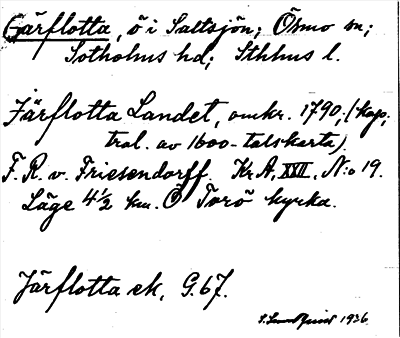 Gärflotta, ö i Saltsjön; Ösmo sn;
Sotholms hd; Sthlms l.
Järflotta Landet, omkr. 1790; (kop;
tral. av 1600-talskarta).
F. R. v. Friesendorff. Kr. A. XXII. N:o 19.
Läge 4½ km. Ö Torö kyrka.
Järflotta ek. G. 67.
1936